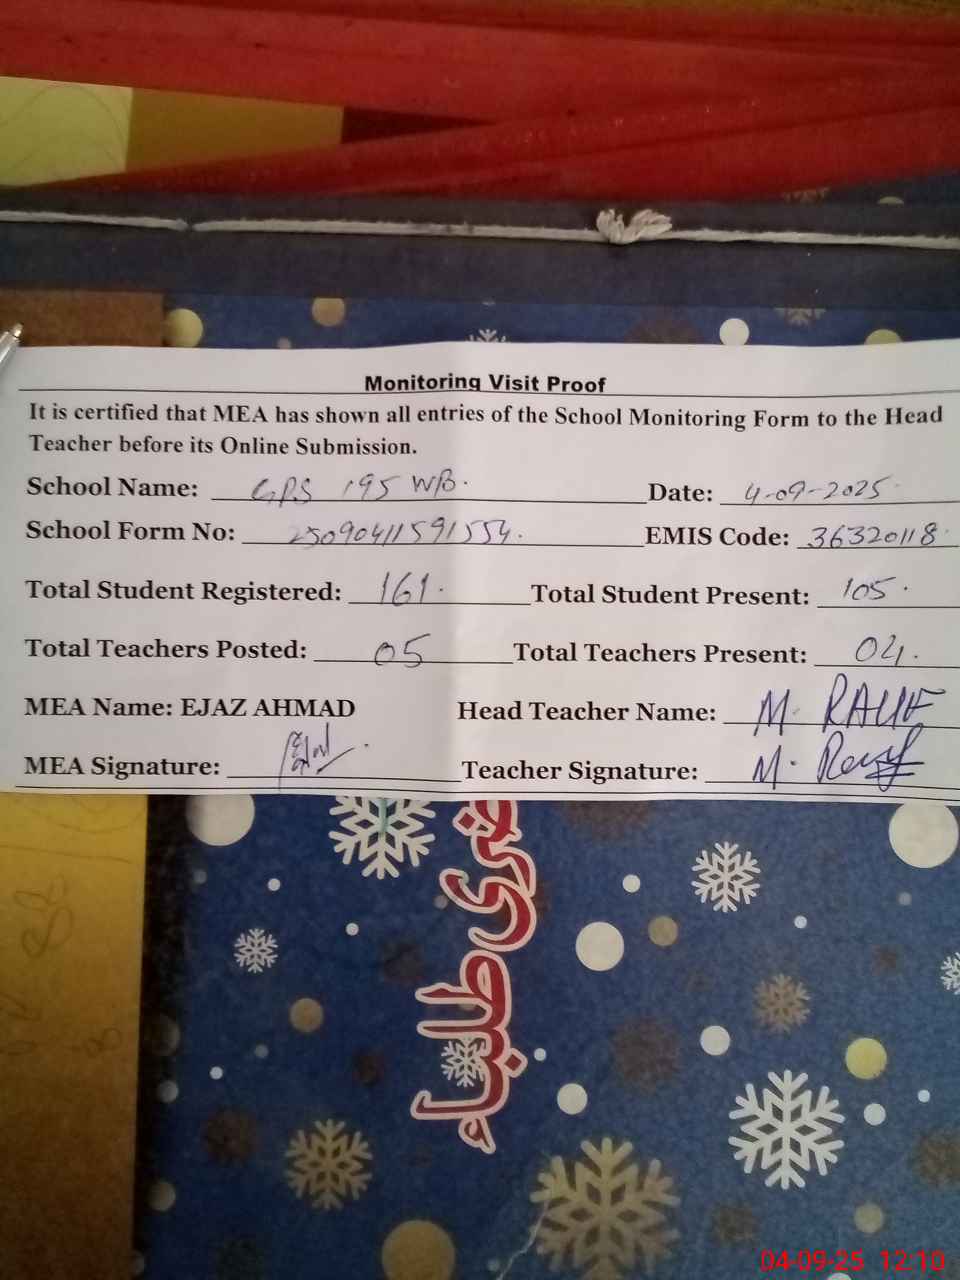 Monitoring Visit Proof
It is certified that MEA has shown all entries of the School Monitoring Form to the Head
Teacher before its Online Submission.
School Name: GPS 195 WB. Date: 4-09-2025
School Form No: 25090411591554. EMIS Code: 36320118
Total Student Registered: 161. Total Student Present: 105.
Total Teachers Posted: 05 Total Teachers Present: 04.
MEA Name: EJAZ AHMAD Head Teacher Name: M. RAUF
MEA Signature: Teacher Signature: M. Rauf
طلباء
04-09-25 12:10